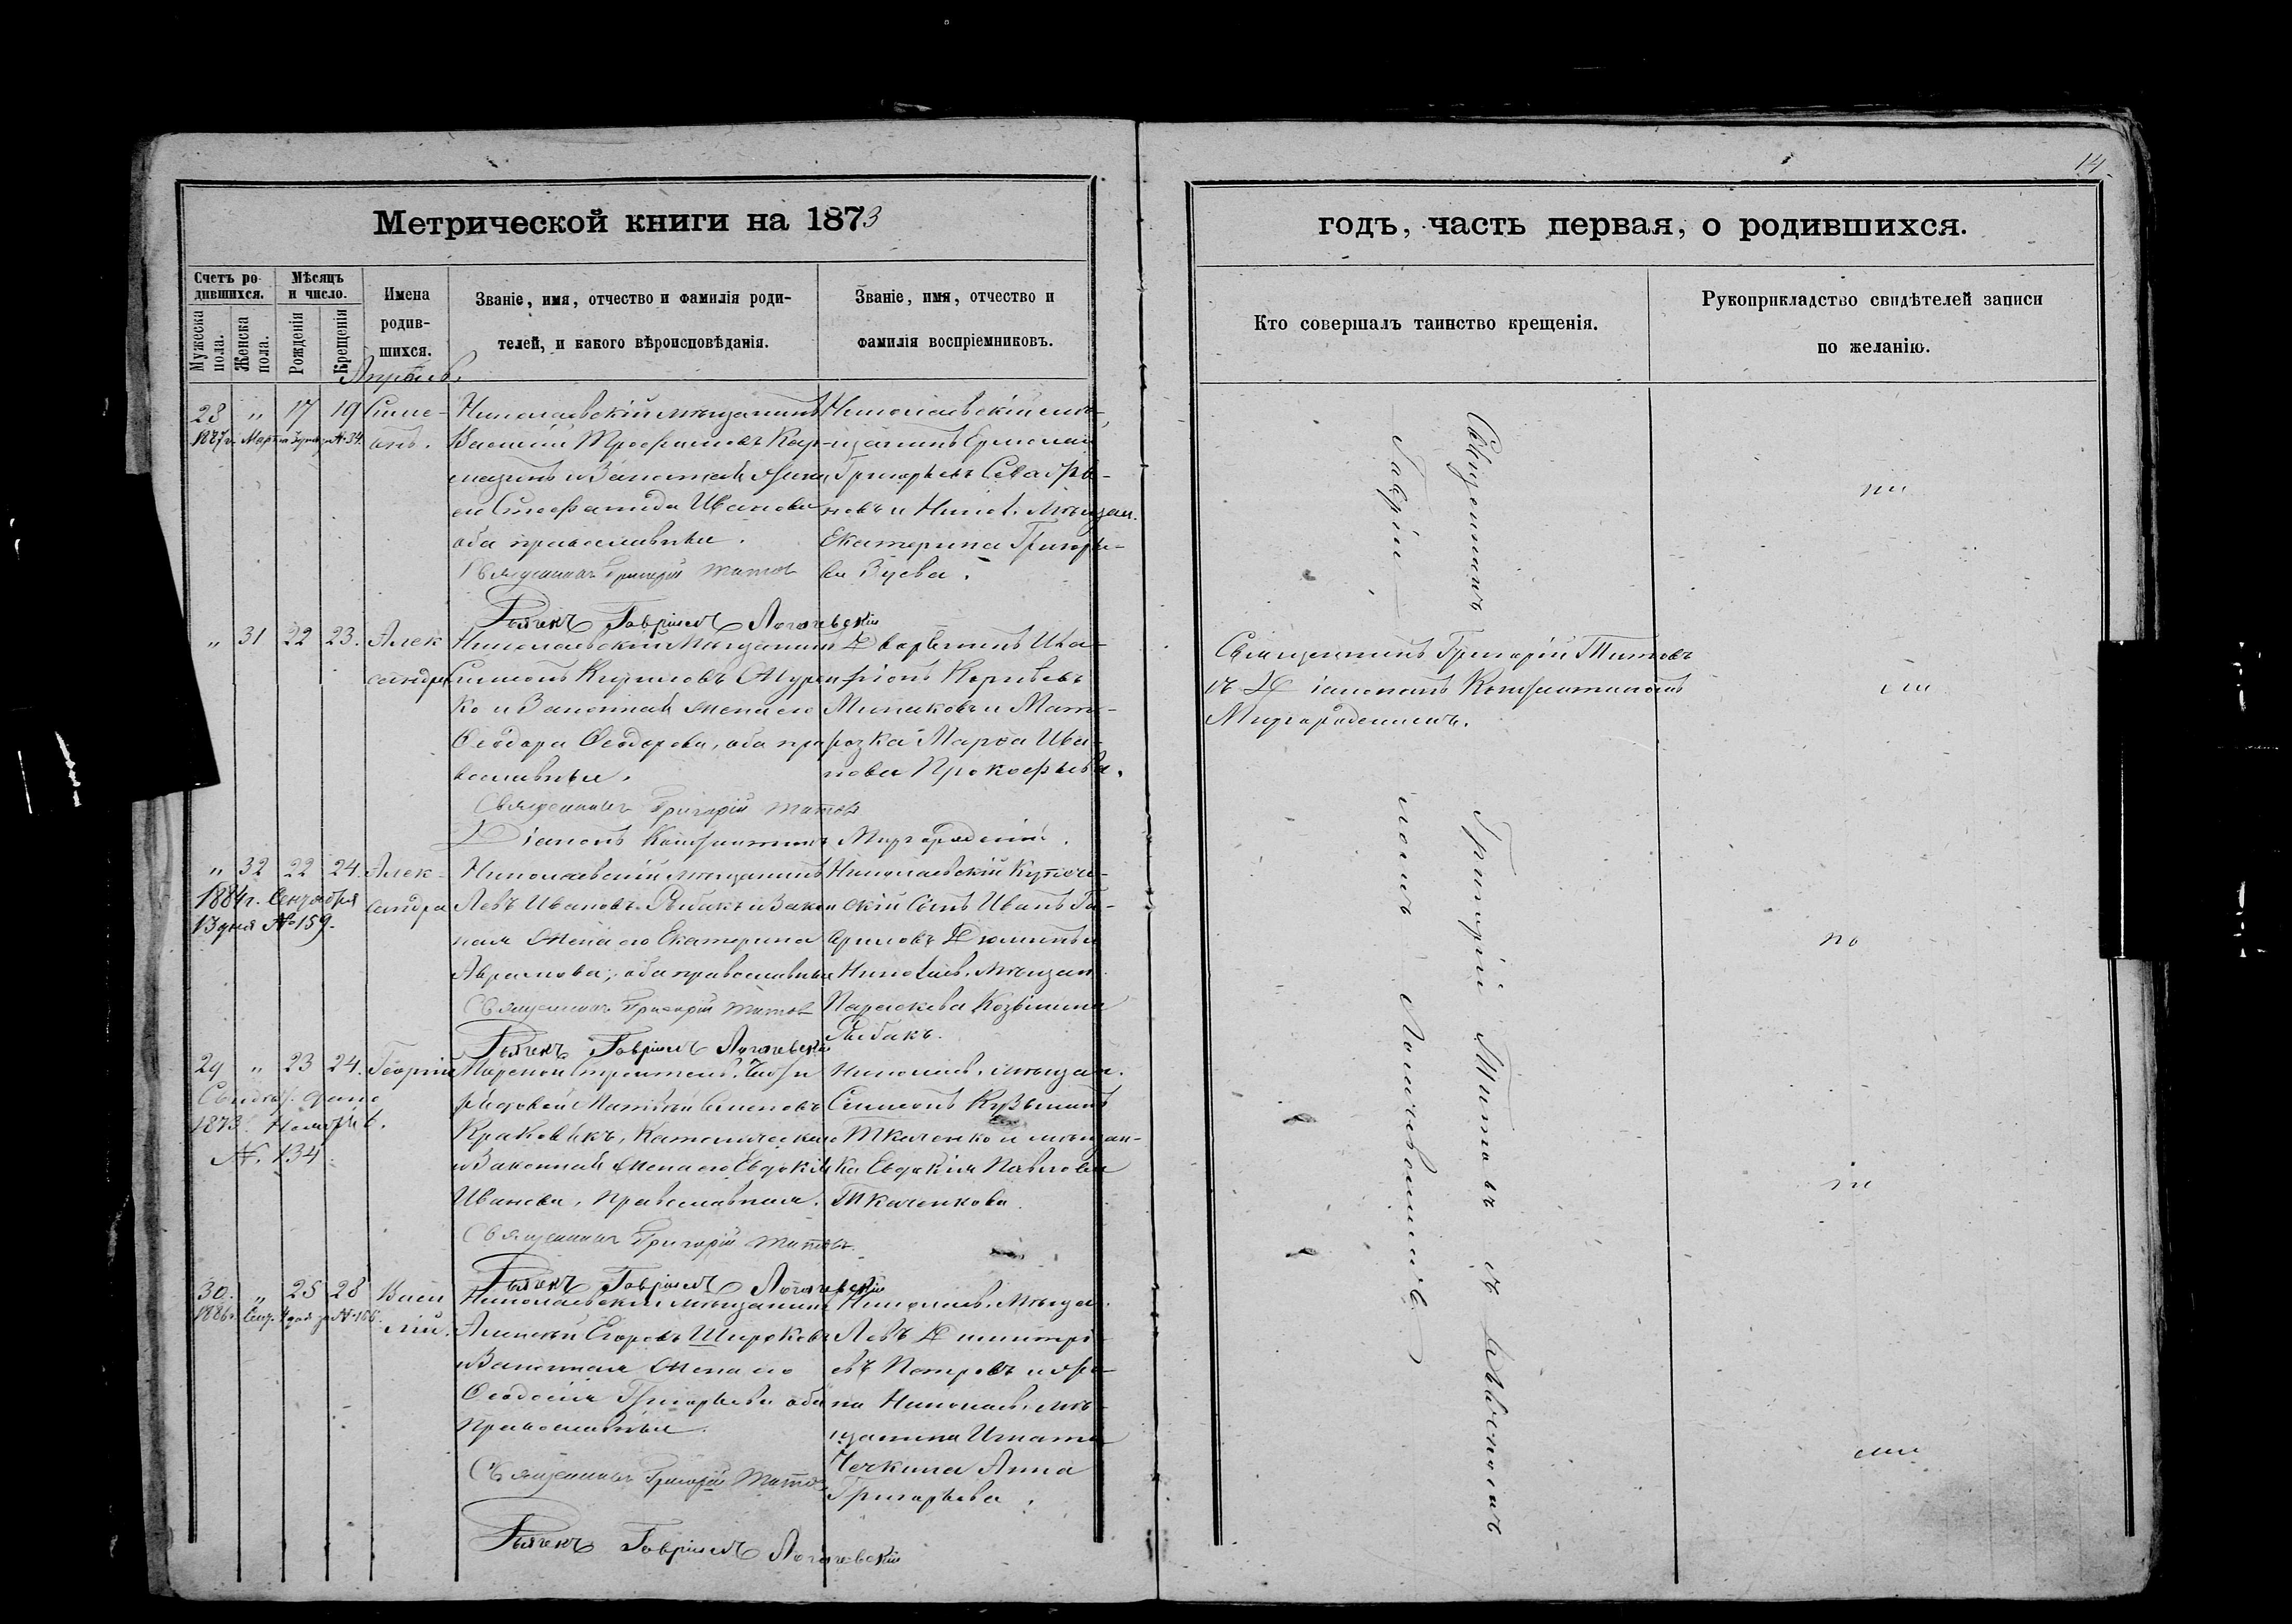 14.
Метрической книги на 1873
годъ, часть первая, о родившихся.
Счетъ ро-
дившихся.
Мужеска
пола.
Женска
пола.
Мѣсяцъ
и число.
Рожденія
Крещенія
Имена
родив-
шихся.
Званіе, имя, отчество и фамилія роди-
телей, и какого вѣроисповѣданія.
Званіе, имя, отчество и
фамилія воспріемниковъ.
Кто совершалъ таинство крещенія.
Рукоприкладство свидѣтелей записи
по желанію.
Апрѣль.
28 " 17 19 Симе-
онъ.
Николаевскій мѣщанинъ
Василій Трофимовъ Кар-
мазинъ и Законная Жена
его Стефанида Иванова
оба православные.
Священникъ Григорій Титовъ
Дьячекъ Гавріилъ Логачевскій
Николаевскій мѣ-
щанинъ Ермолай
Григорьевъ
новъ и Никол. Мѣщан.
Екатерина Григорье-
ва Зуева.
" 31 22 23. Алек
сандра
Николаевскій Мѣщанинъ
Симеонъ Кириловъ Журен
ко и Законная Жена его
Ѳеодора Ѳеодорова, оба пра
вославные.
Священникъ Григорій Титовъ
Діаконъ Константинъ Миргородскій.
Дворянинъ Ила-
ріонъ Корніевъ
Минаковъ и Мат-
розка Марѳа Ива-
нова Прокофьева.
Священникъ Григорій Титовъ
съ Діакономъ Константиномъ
Миргородскимъ.
" 32 22 24. Алек-
сандра
1884 г. Сентября
13 дня № 159.
Николаевскій мѣщанинъ
Левъ Ивановъ Рыбакъ и Закон
ная Жена его Екатерина
Абрамова, оба православные
Священникъ Григорій Титовъ
Дьячекъ Гавріилъ Логачевскій
Николаевскій Купече-
скій Сынъ Иванъ Га-
вриловъ Дюминъ и
Николаев. Мѣщан.
Параскева Козьмина
Рыбакъ.
29 " 23 24. Георгій
1873. Ноября 6.
№. 134
Матвѣй Семеновъ
Католическаго
и Законная Жена его Евдокія
Иванова, Православная.
Священникъ Григорій Титовъ
Дьячекъ Гавріилъ Логачевскій
Николаев. мѣщан.
Симеонъ Кузьминъ
Ткаченко и мѣщан-
ка Евдокія Павлова
Ткаченкова.
30. " 25 28 Васи
лій.
Николаевскій мѣщанинъ
Алексѣй Егоровъ Широковъ
и Законная Жена его
Ѳеодосія Григорьева оба
Православные.
Священникъ Григорій Титовъ
Дьячекъ Гавріилъ Логачевскій
Николаев. Мѣщан.
Левъ Димитрі-
евъ Петровъ и Же-
на Николаев. мѣ-
щанина Игната
Чечкина Анна
Григорьева.
Священникъ Григорій Титовъ съ